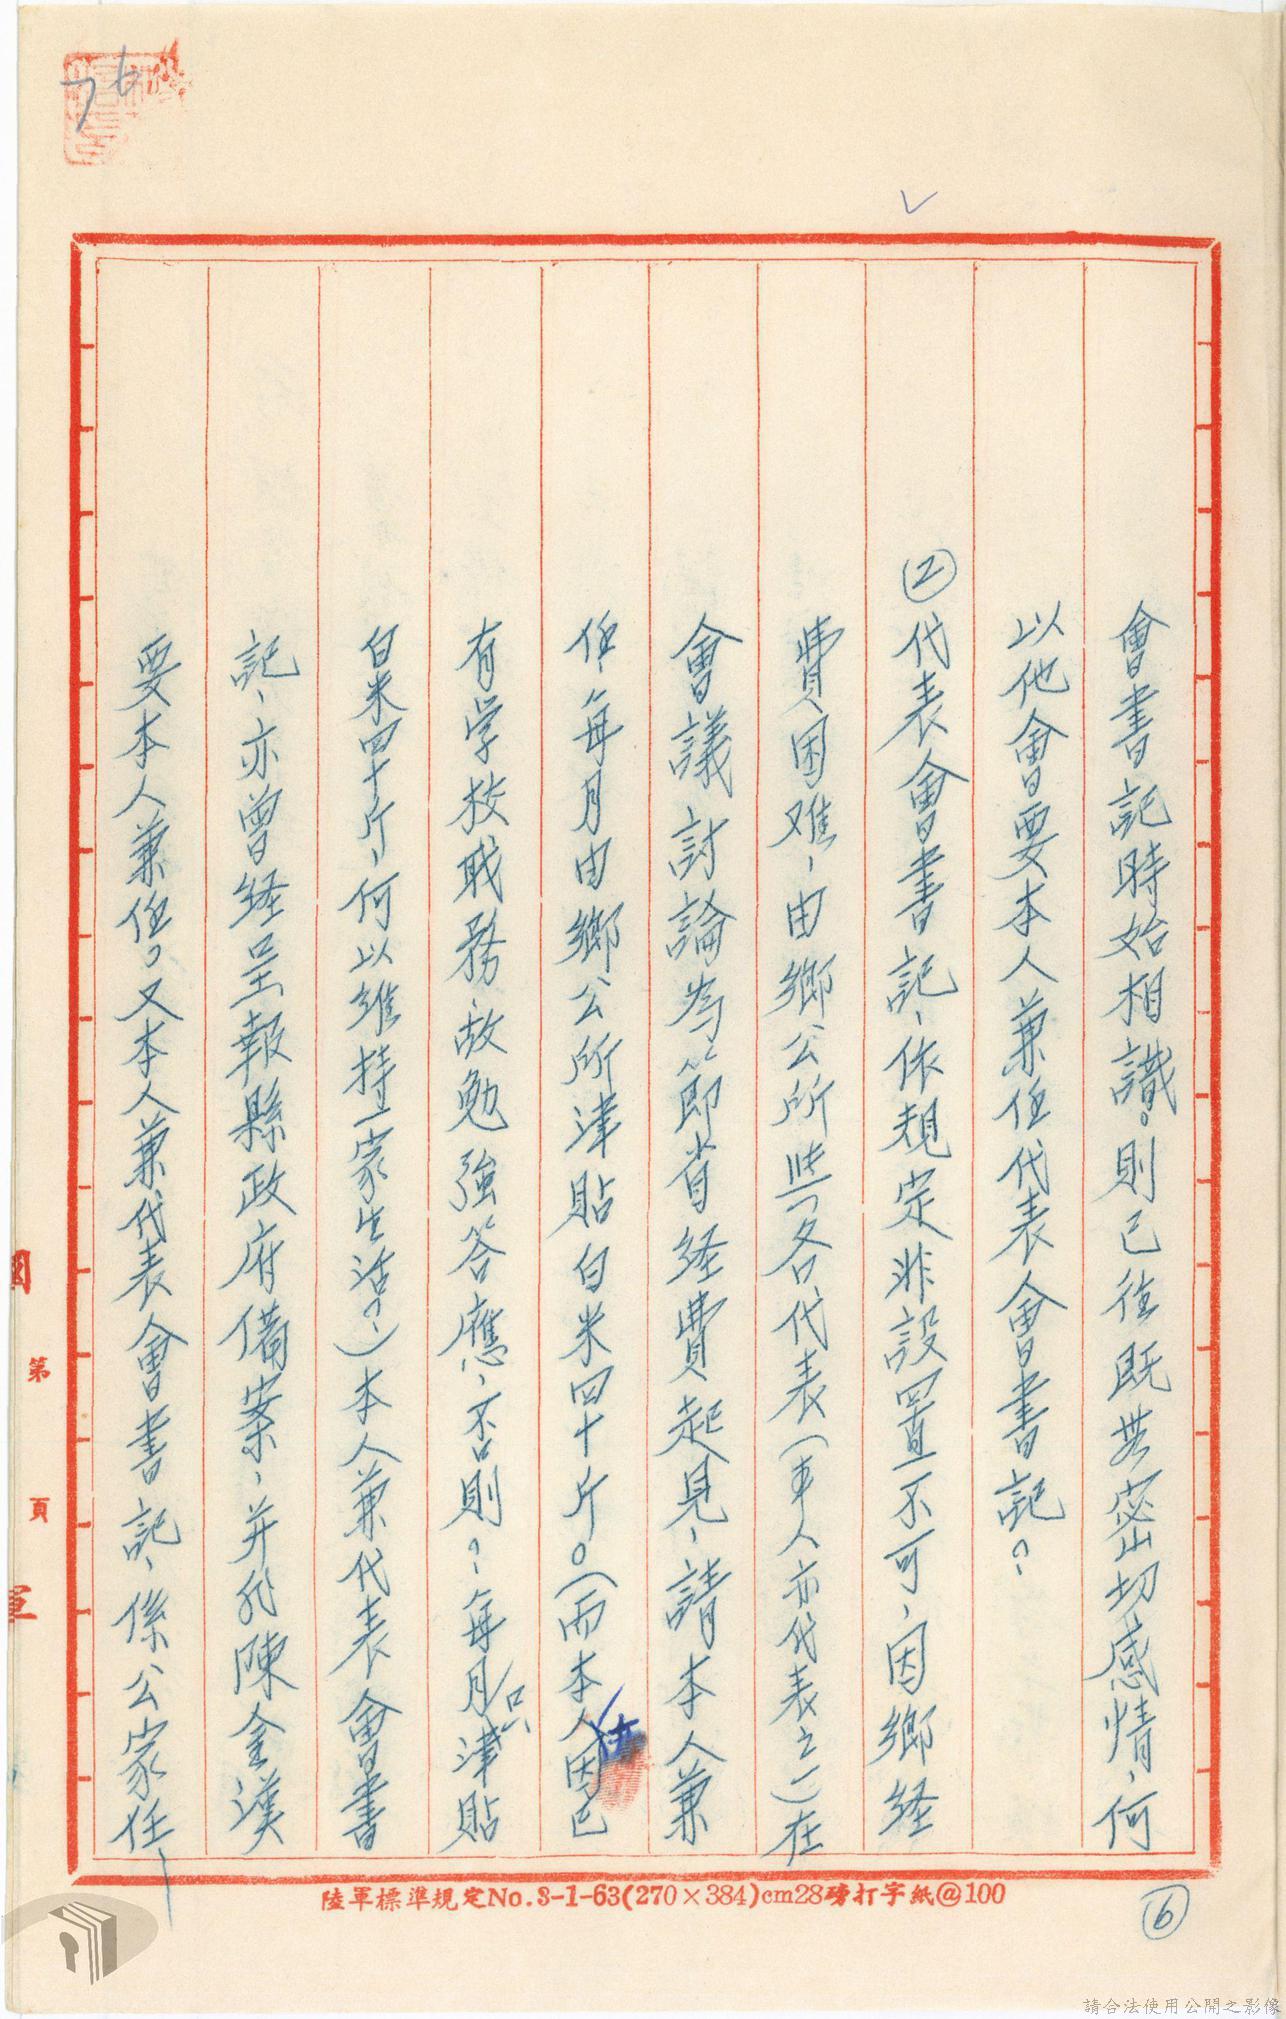 76
會書記時始相識。則已往既無密切感情，何
以他會要本人兼任代表會書記？
②代表會書記，依規定非設置不可，因鄉経
費困难，由鄉公所些各代表（車人亦代表之一）在
會議討論為節省経費起見，請本人兼
任，每月由鄉公所津貼白米四十斤。（而本人因已
有学校职務，故勉強答應，否則？每月只津貼
白米四十斤，何以維持一家生活？）本人兼代表會書
記，亦曾経呈報縣政府備案，并非陳金漢
要本人兼任。又本人兼代表會書記，係公家任
第 頁
陸軍標準規定No.3-1-63(270×384)cm28磅打字紙@100
⑥
請合法使用公開之影像